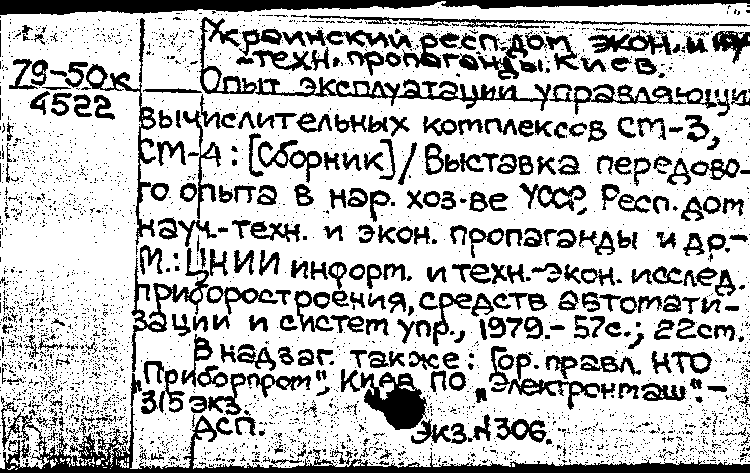 Украинский респ. дом экон. и научн.
-техн. пропаганды. Киев.
79-50к
4522
Опыт эксплуатации управляющих
вычислительных комплексов СМ-3,
СМ-4: [Сборник] / Выставка передово-
го опыта в нар. хоз-ве УССР, Респ. дом
науч.-техн. и экон. пропаганды и др.-
М.: ЦНИИ информ. и техн.-экон. исслед.
приборостроения, средств автомати-
зации и систем упр., 1979.- 57с.; 22см.
В надзаг. также: Гор. правл. НТО
"Приборпром", Киев. ПО "Электронмаш".-
315 экз.
ДСП.
Экз.№306.